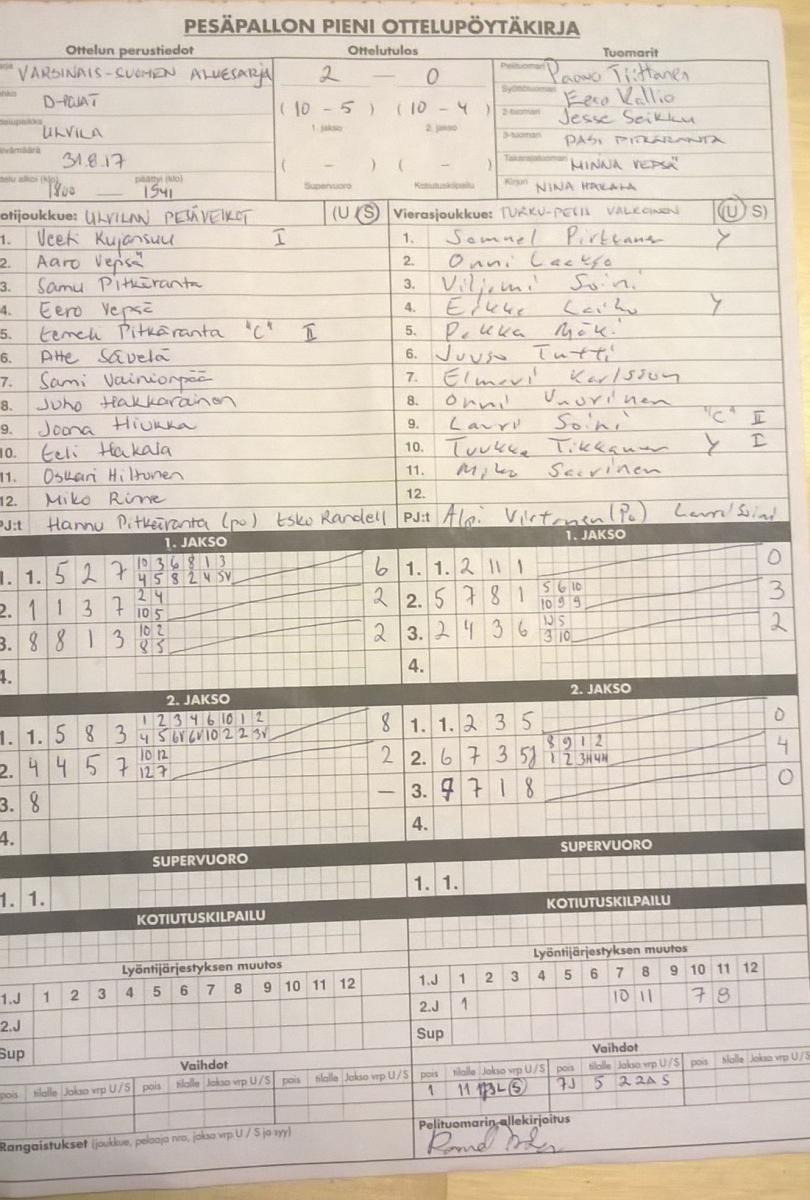 PESÄPALLON PIENI OTTELUPÖYTÄKIRJA
Ottelun perustiedot Ottelutulos Tuomarit
VARSINAIS-SUOMEN ALUESARJA 2 — 0 Pelituomari
D-POJAT (10 - 5) (10 - 4) Syöttötuomari Eero Kallio
1. jakso 2. jakso 2-tuomari Jesse Seikku
ULVILA 3-tuomari PASI PITKÄRANTA
31.8.17 ( - ) ( - ) Takarajatuomari MINNA VEPSÄ
päättyi (klo) Supervuoro Kotiutuskilpailu Kirjuri NINA HAKALA
1800 — 1941
otijoukkue: ULVILAN PESÄVEIKOT (U S) Vierasjoukkue: TURKU-PESIS VALKOINEN (U S)
1. Veeti Kujansuu I 1. Samuel Pirttanen Y
2. Aaro Vepsä 2. Onni Laakso
3. Samu Pitkäranta 3. Viljami Soini
4. Eero Vepsä 4. Erkka Leiho Y
5. Eemeli Pitkäranta "C" II 5. Pekka Mäki
6. Atte Sävelä 6. Juuso Tutti
7. Sami Vainionpää 7. Elmeri Karlsson
8. Juho Hakkarainen 8. Onni Vuorinen
9. Joona Hiukka 9. Lauri Soini "C" II
10. Eeli Hakala 10. Tuukka Tikkanen Y I
11. Oskari Hiltunen 11. Miko Saarinen
12. Miko Rinne 12.
PJ:t Hannu Pitkäranta (po) Esko Randell PJ:t Alpi Virtanen (Po) Lauri Soini
1. JAKSO 1. JAKSO
10 3 6 8 1 3
1. 1. 5 2 7 4 5 8 2 4 5V 6 1. 1. 2 11 1 0
2 4 5 6 10
2. 1 1 3 7 10 5 2 2. 5 7 8 1 10 9 9 3
10 2
3. 8 8 1 3 8 5 2 3. 2 4 3 6 3 10 2
4. 4.
2. JAKSO 2. JAKSO
1 2 3 4 6 10 1 2
1. 1. 5 8 3 4 5 6V 6V 10 2 2 3V 8 1. 1. 2 3 5 0
10 12 8 9 1 2
2. 4 4 5 7 12 7 2 2. 6 7 3 5J 1 2 3H 4H 4
3. 8 — 3. 7 7 1 8 0
4. 4.
SUPERVUORO SUPERVUORO
1. 1. 1. 1.
KOTIUTUSKILPAILU KOTIUTUSKILPAILU
Lyöntijärjestyksen muutos Lyöntijärjestyksen muutos
1.J 1 2 3 4 5 6 7 8 9 10 11 12 1.J 1 2 3 4 5 6 7 8 9 10 11 12
2.J 2.J 1 10 11 7 8
Sup Sup
Vaihdot Vaihdot
pois tilalle Jakso vrp U/S pois tilalle Jakso vrp U/S pois tilalle Jakso vrp U/S pois tilalle Jakso vrp U/S pois tilalle Jakso vrp U/S pois tilalle Jakso vrp U/S
1 11 7J 5 2 2A S
Rangaistukset (joukkue, pelaaja nro, jakso vrp U / S ja syy) Pelituomarin allekirjoitus